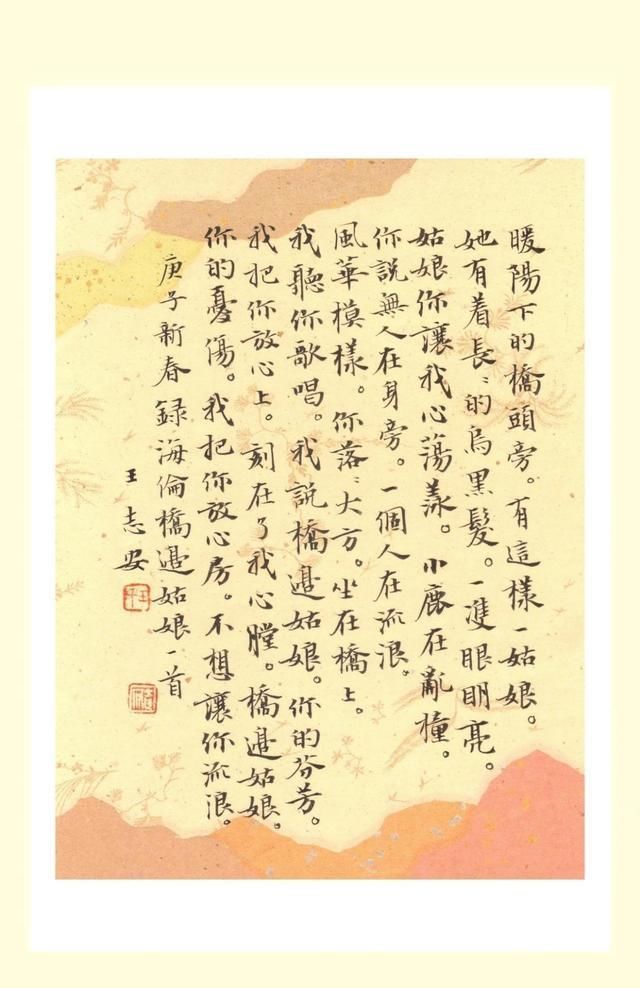 暖陽下的橋頭旁。有這樣一姑娘。
她有着長〻的烏黑髮。一雙眼明亮。
姑娘你讓我心蕩漾。小鹿在亂撞。
你說無人在身旁。一個人在流浪。
風華模樣。你落〻大方。坐在橋上。
我聽你歌唱。我說橋邊姑娘。你的芬芳。
我把你放心上。刻在了我心膛。橋邊姑娘。
你的憂傷。我把你放心房。不想讓你流浪。
庚子新春録海倫橋邊姑娘一首
王志安